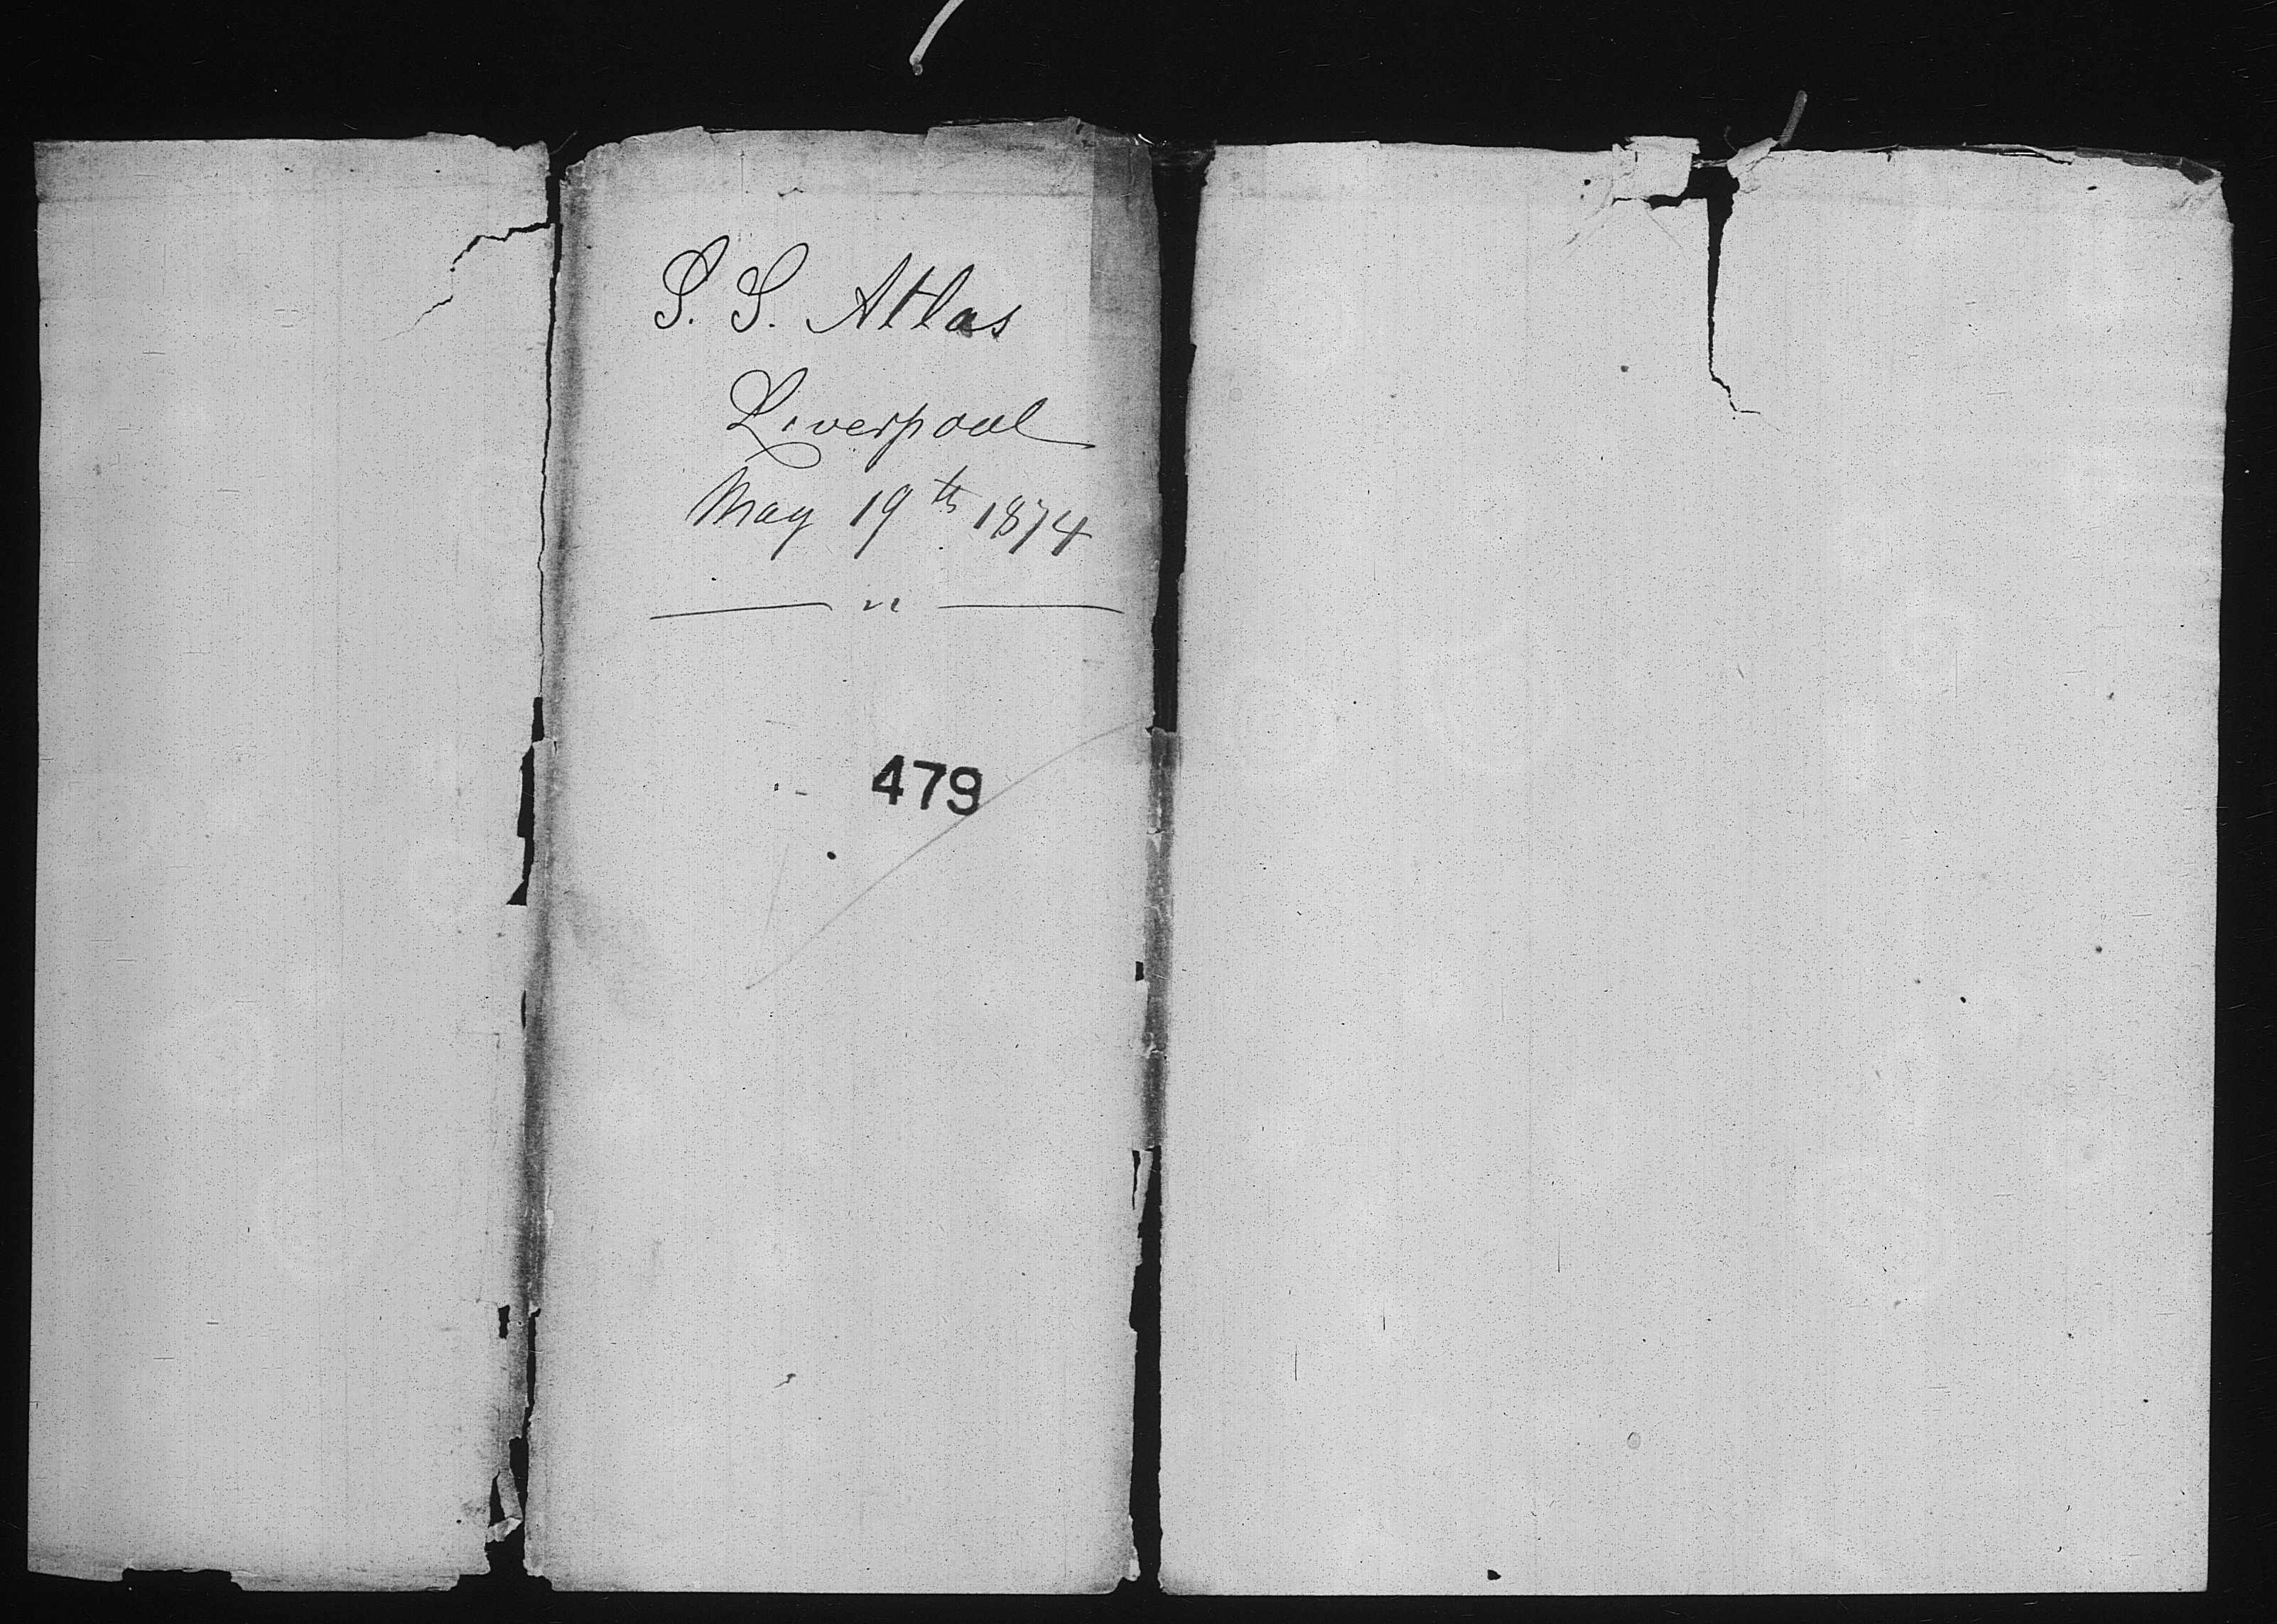 S. S. Atlas
Liverpool
May 19th 1874
— " —
479